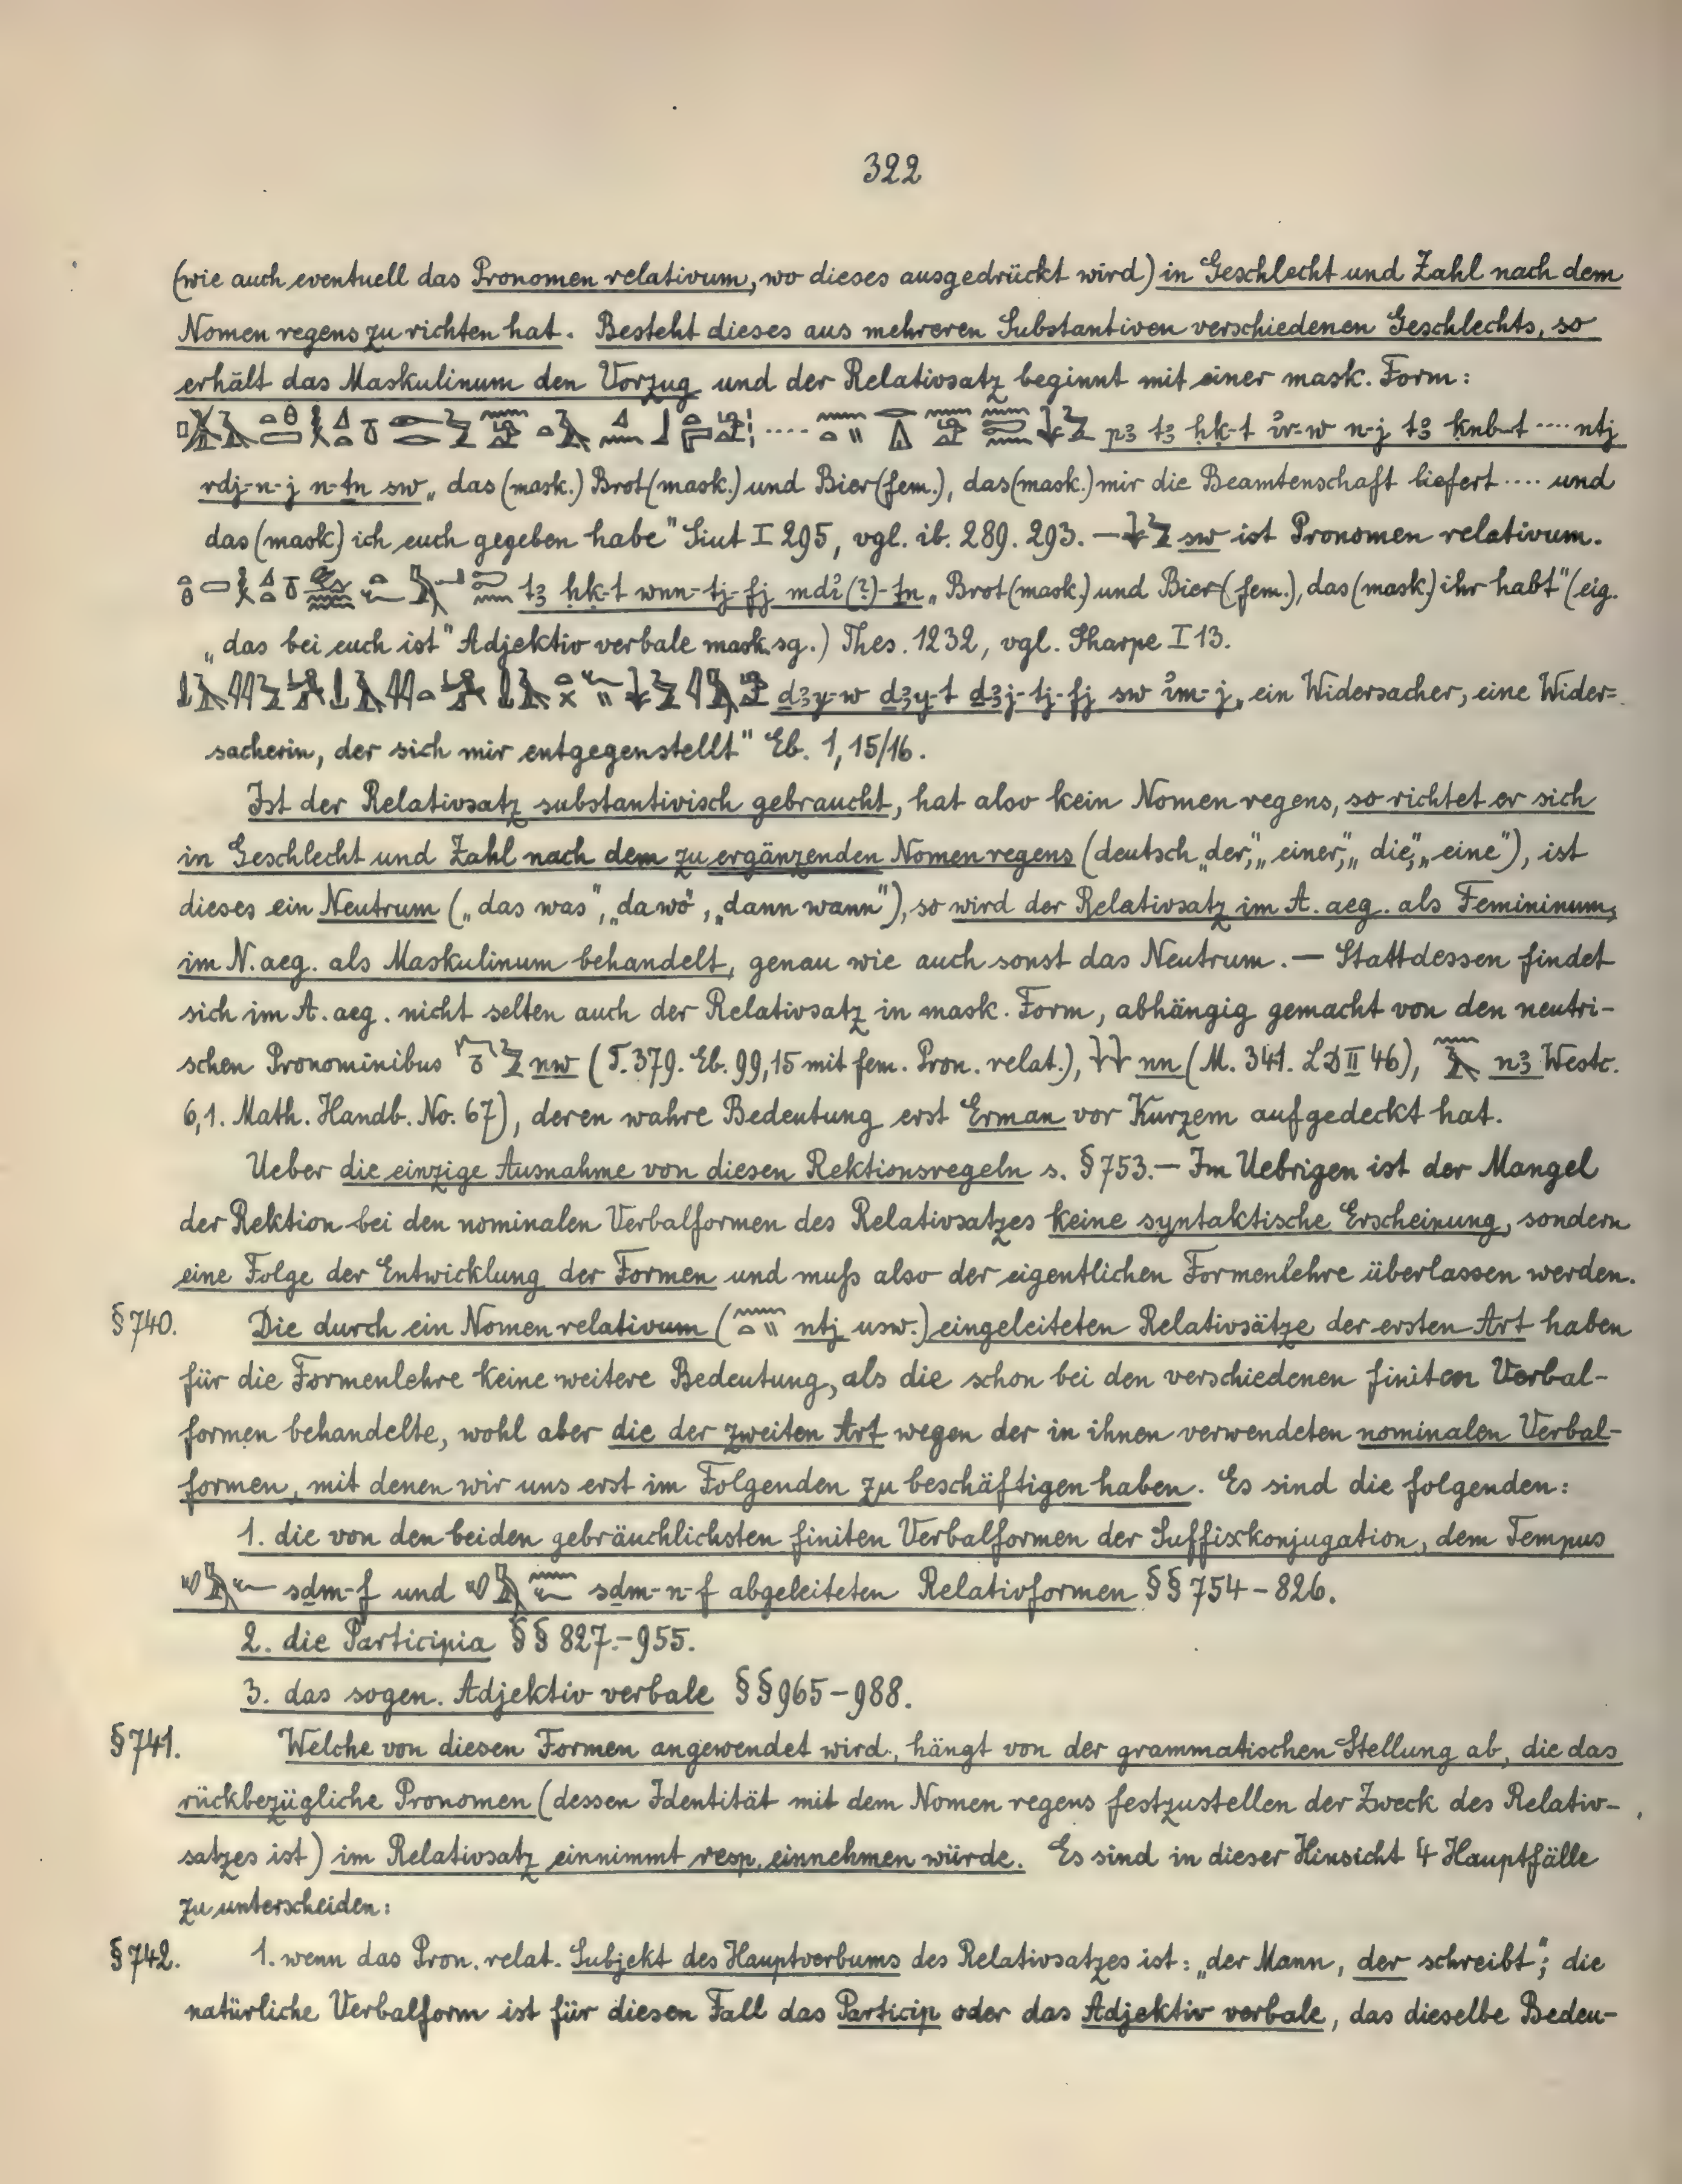 322
(wie auch eventuell das Pronomen relativum, wo dieses ausgedrückt wird) in Geschlecht und Zahl nach dem
Nomen regens zu richten hat. Besteht dieses aus mehreren Substantiven verschiedenen Geschlechts, so
erhält das Maskulinum den Vorzug und der Relativsatz beginnt mit einer mask. Form:
.... pꜣ tꜣ ḥḳ-t ı͗r-w n-j tꜣ ḳnb-t .... ntj
rdj-n-j n-ṯn sw „das (mask.) Brot (mask.) und Bier (fem.), das (mask.) mir die Beamtenschaft liefert .... und
das (mask) ich euch gegeben habe" Siut I 295, vgl. ib. 289. 293. — sw ist Pronomen relativum.
tꜣ ḥḳ-t wnn-tj-fj mdı͗(?)-ṯn „Brot (mask.) und Bier (fem.), das (mask.) ihr habt" (eig.
„das bei euch ist" Adjektiv verbale mask. sg.) Thes. 1232, vgl. Sharpe I 13.
ḏꜣy-w ḏꜣy-t ḏꜣj-tj-fj sw ı͗m-j „ein Widersacher, eine Wider=
sacherin, der sich mir entgegenstellt" Eb. 1, 15/16.
Ist der Relativsatz substantivisch gebraucht, hat also kein Nomen regens, so richtet er sich
in Geschlecht und Zahl nach dem zu ergänzenden Nomen regens (deutsch „der", „einer", „die", „eine"), ist
dieses ein Neutrum („das was", „da wo", „dann wann"), so wird der Relativsatz im A. aeg. als Femininum,
im N. aeg. als Maskulinum behandelt, genau wie auch sonst das Neutrum. — Stattdessen findet
sich im A. aeg. nicht selten auch der Relativsatz in mask. Form, abhängig gemacht von den neutri-
schen Pronominibus nw (T. 379. Eb. 99, 15 mit fem. Pron. relat.), nn (M. 341. LD II 46), nꜣ Westc.
6,1. Math. Handb. No. 67), deren wahre Bedeutung erst Erman vor Kurzem aufgedeckt hat.
Ueber die einzige Ausnahme von diesen Rektionsregeln s. § 753. — Im Uebrigen ist der Mangel
der Rektion bei den nominalen Verbalformen des Relativsatzes keine syntaktische Erscheinung, sondern
eine Folge der Entwicklung der Formen und muß also der eigentlichen Formenlehre überlassen werden.
§ 740. Die durch ein Nomen relativum ( ntj usw.) eingeleiteten Relativsätze der ersten Art haben
für die Formenlehre keine weitere Bedeutung, als die schon bei den verschiedenen finiten Verbal-
formen behandelte, wohl aber die der zweiten Art wegen der in ihnen verwendeten nominalen Verbal-
formen, mit denen wir uns erst im Folgenden zu beschäftigen haben. Es sind die folgenden:
1. die von den beiden gebräuchlichsten finiten Verbalformen der Suffixkonjugation, dem Tempus
sḏm-f und sḏm-n-f abgeleiteten Relativformen §§ 754 – 826.
2. die Participia §§ 827. – 955.
3. das sogen. Adjektiv verbale §§ 965 – 988.
§ 741. Welche von diesen Formen angewendet wird, hängt von der grammatischen Stellung ab, die das
rückbezügliche Pronomen (dessen Identität mit dem Nomen regens festzustellen der Zweck des Relativ-
satzes ist) im Relativsatz einnimmt resp. einnehmen würde. Es sind in dieser Hinsicht 4 Hauptfälle
zu unterscheiden:
§ 742. 1. wenn das Pron. relat. Subjekt des Hauptverbums des Relativsatzes ist: „der Mann, der schreibt"; die
natürliche Verbalform ist für diesen Fall das Particip oder das Adjektiv verbale, das dieselbe Bedeu-